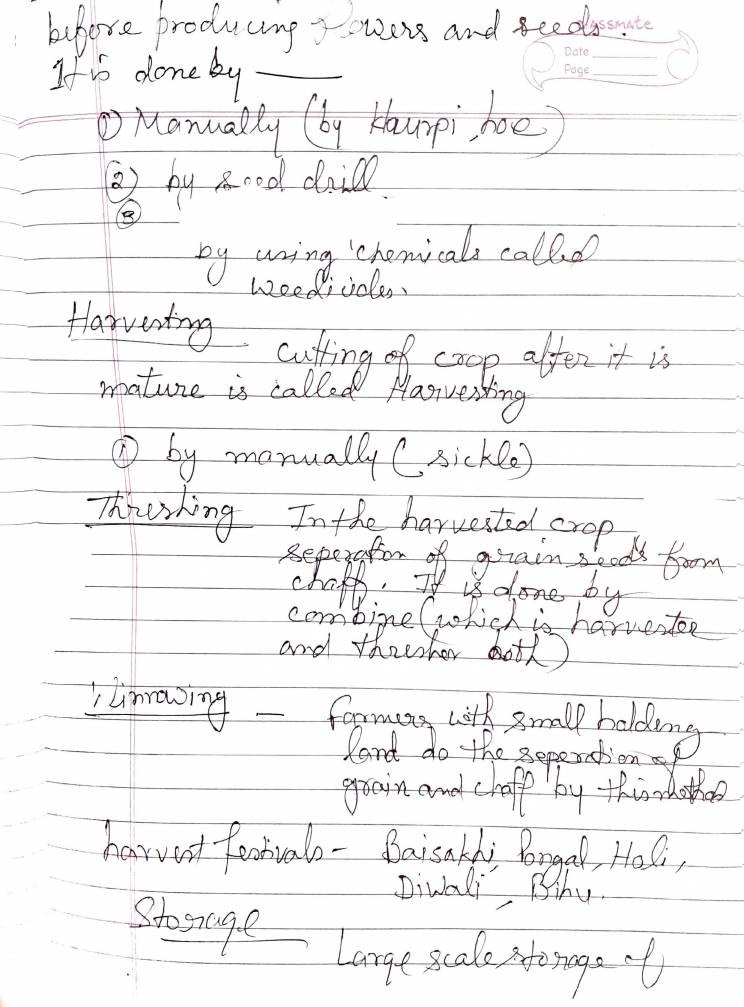 before producing flowers and seeds.
classmate
Date
Page
It is done by —
① Manually (by Khurpi, hoe)
② by seed drill.
③
by using 'chemicals called
weedicides.
Harvesting
Cutting of crop after it is
mature is called Harvesting
① by manually (sickle)
Threshing In the harvested crop
seperation of grain seeds from
chaff. It is done by
combine (which is harvester
and thresher both)
Winnowing — farmers with small holdeng
land do the seperation of
grain and chaff by this method
harvest festivals - Baisakhi, Pongal, Holi,
Diwali, Bihu.
Storage
Large scale storage of